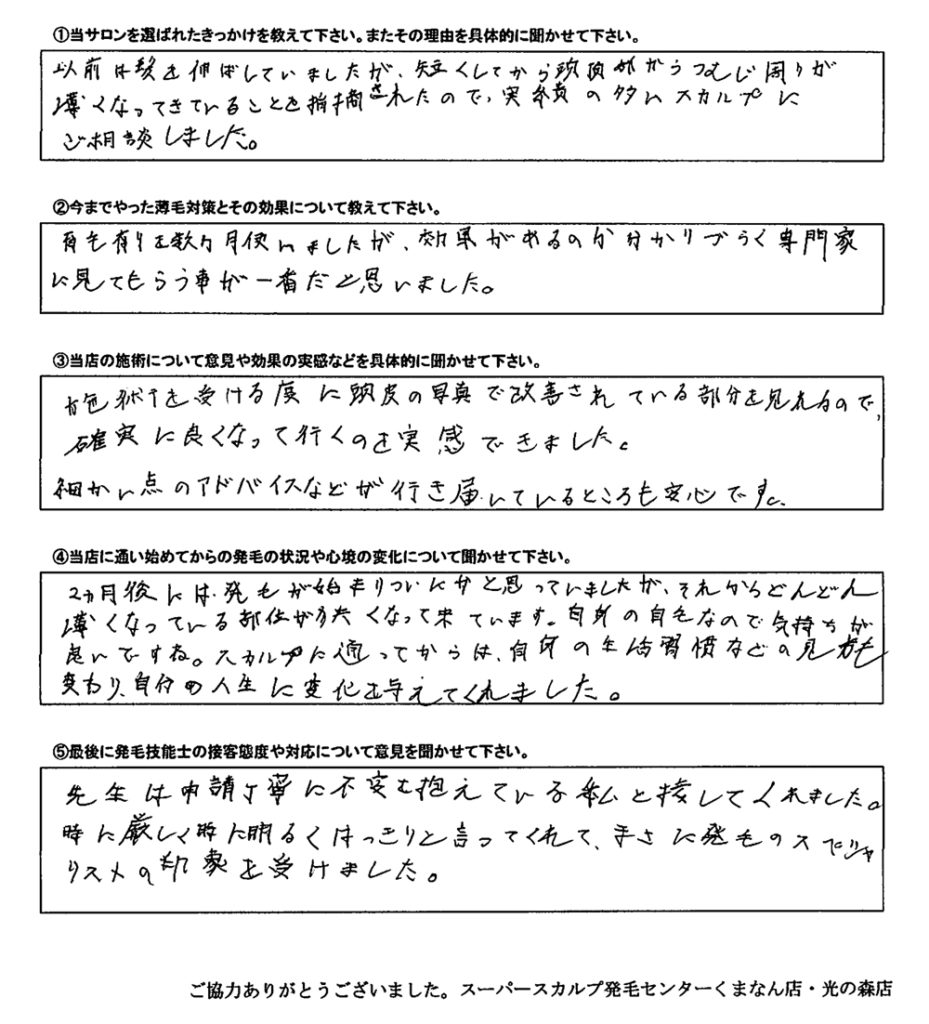 ①当サロンを選ばれたきっかけを教えて下さい。またその理由を具体的に聞かせて下さい。
以前は髪を伸ばしていましたが、短くしてから頭頂部からつむじ周りが
薄くなってきていることを指摘されたので、実績の多いスカルプに
ご相談しました。
②今までやった薄毛対策とその効果について教えて下さい。
育毛剤を数ヶ月使いましたが、効果があるのか分かりづらく専門家
に見てもらう事が一番だと思いました。
③当店の施術について意見や効果の実感などを具体的に聞かせて下さい。
施術を受ける度に頭皮の写真で改善されている部分を見れるので、
確実に良くなって行くのを実感できました。
細かい点のアドバイスなどが行き届いているところも安心です。
④当店に通い始めてからの発毛の状況や心境の変化について聞かせて下さい。
2ヵ月後には発毛が始まりついにかと思っていましたが、それからどんどん
薄くなっている部位が無くなって来ています。自身の自毛なので気持ちが
良いですね。スカルプに通ってからは、自身の生活習慣などの見方も
変わり、自分の人生に変化を与えてくれました。
⑤最後に発毛技能士の接客態度や対応について意見を聞かせて下さい。
先生は申請丁寧に不安を抱えている私と接してくれました。
時に厳しく時に明るくはっきりと言ってくれて、まさに発毛のスペシャ
リストの印象を受けました。
ご協力ありがとうございました。スーパースカルプ発毛センターくまなん店・光の森店